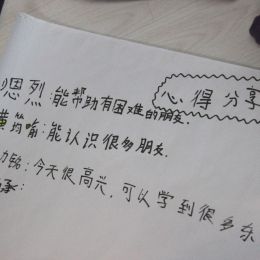 心得分享
恩烈:能帮助有困难的朋友.
黄筠喻:能认识很多朋友.
力铭:今天很高兴,可以学到很多东
承: